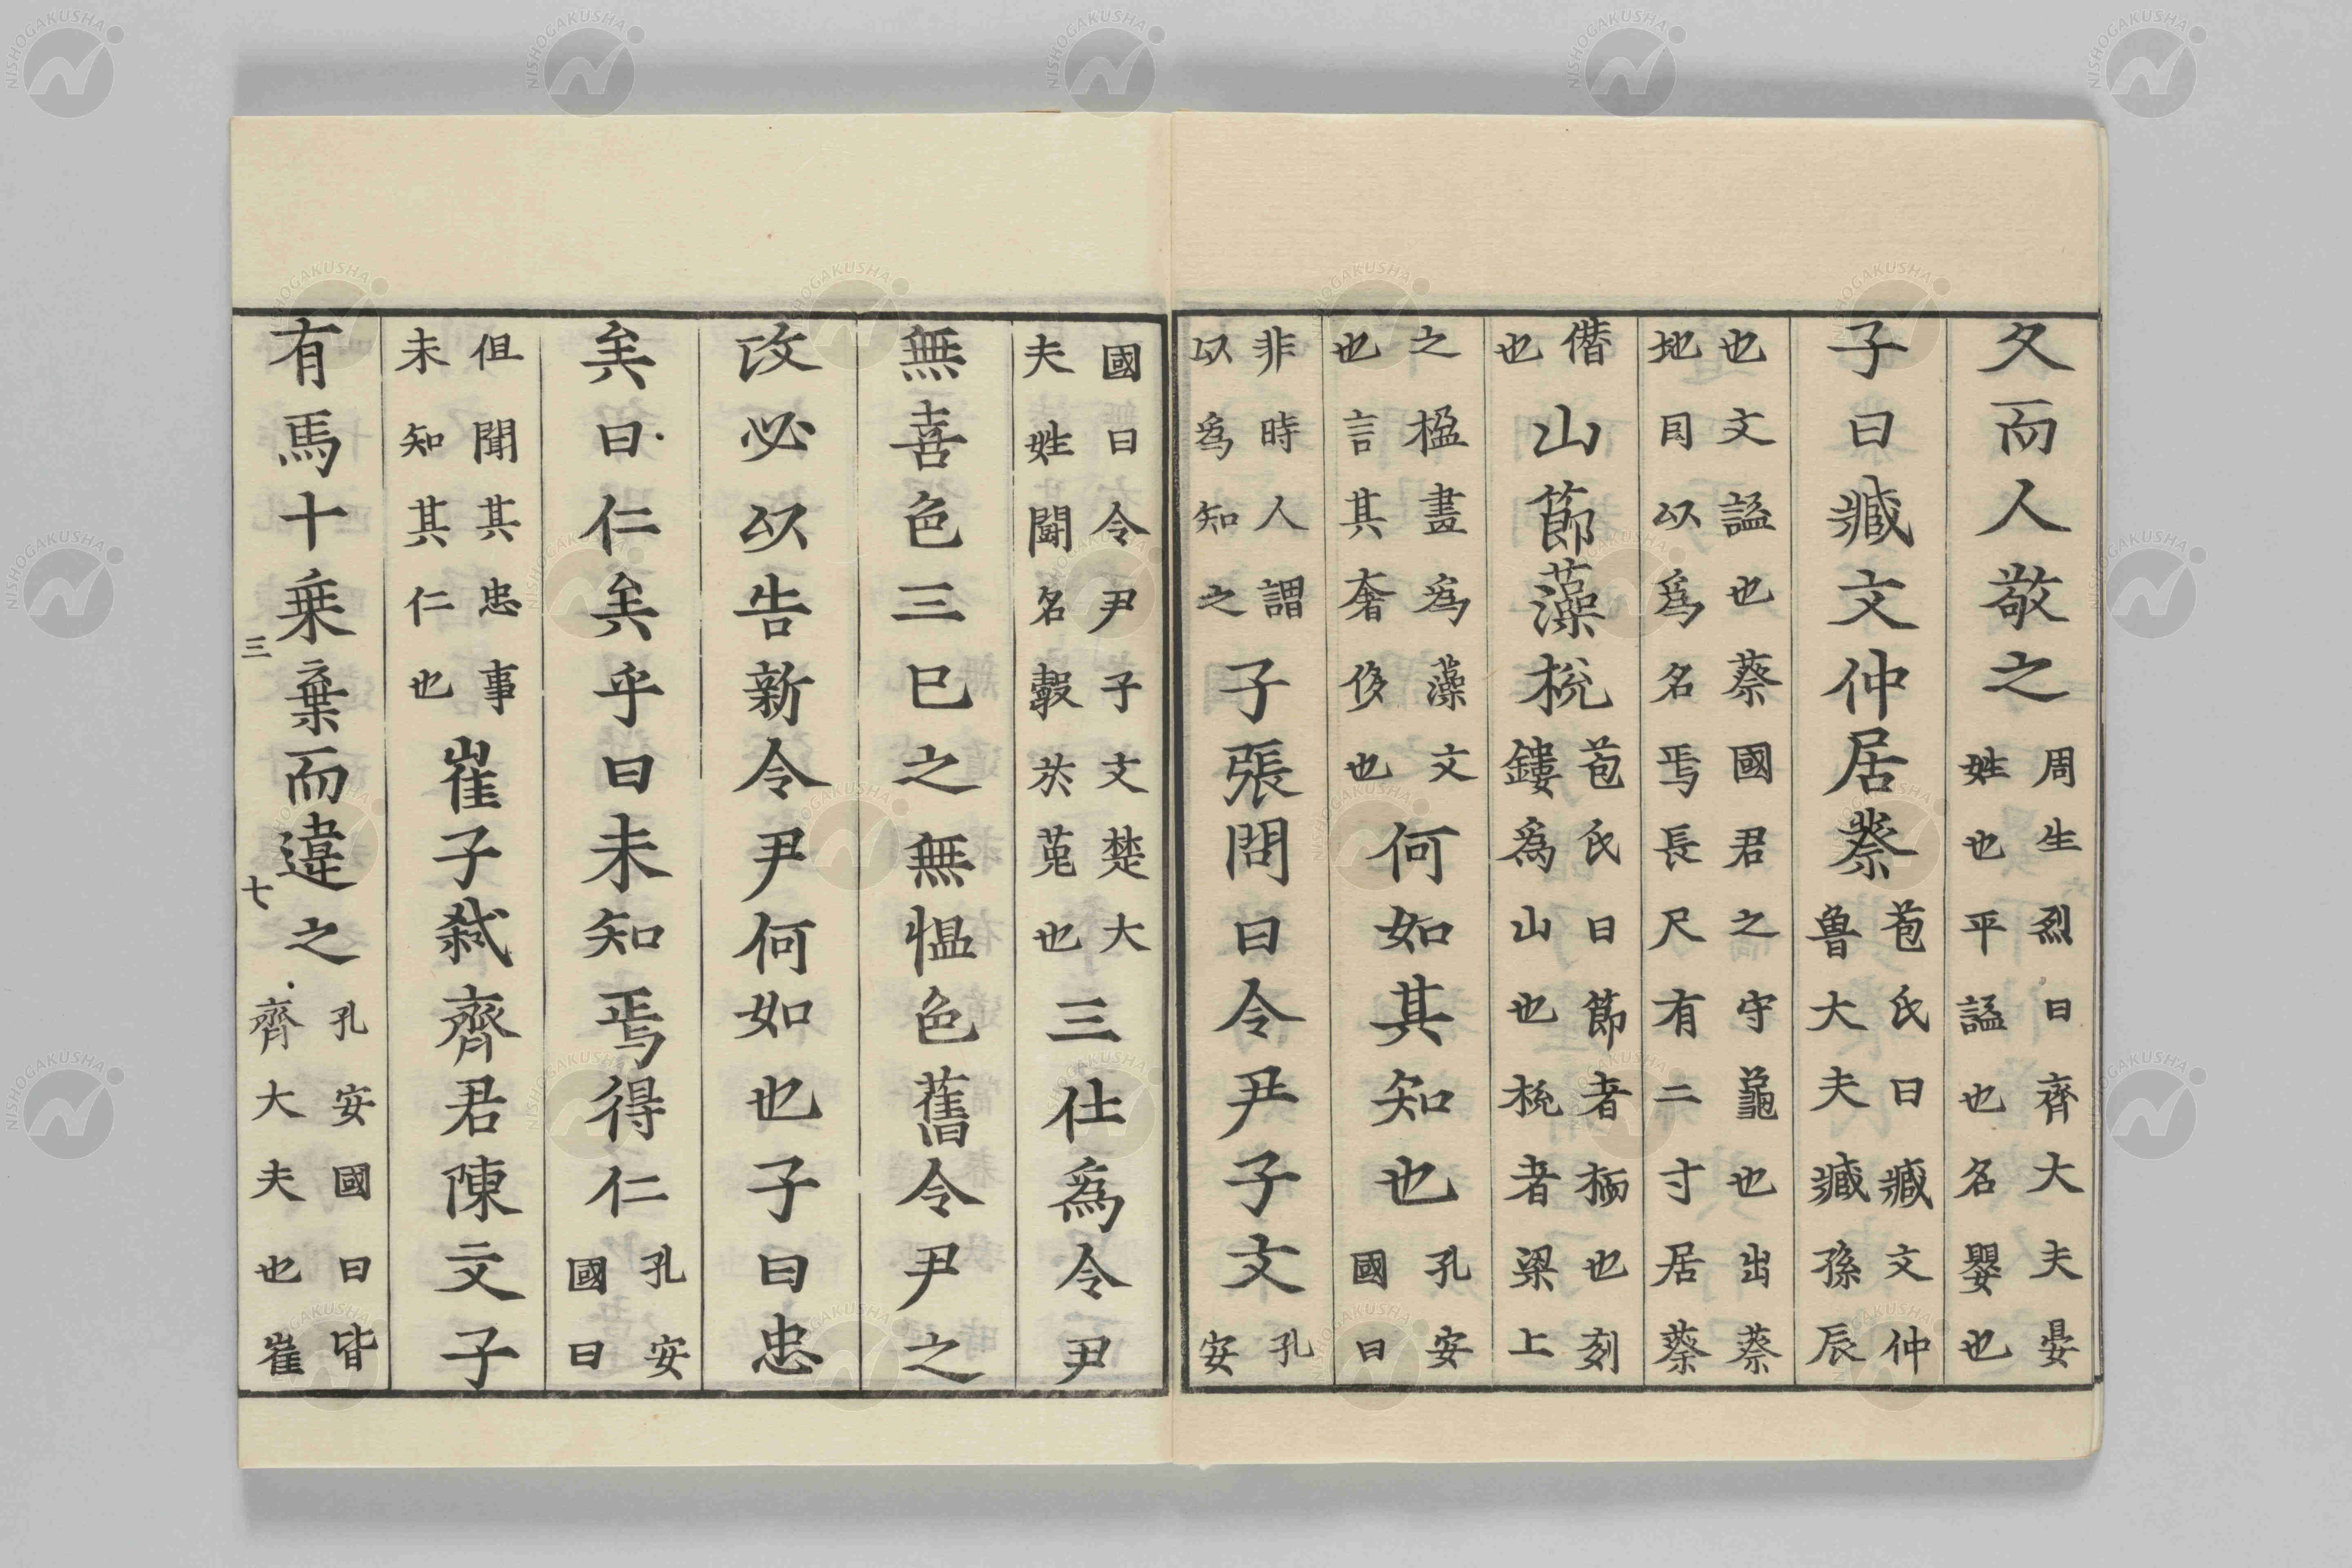 久而人敬之周生烈曰齊大夫晏姓也平謚也名嬰也
子曰臧文仲居蔡苞氏曰臧文仲魯大夫臧孫辰
也文謚也蔡國君之守龜也出蔡地因以爲名焉長尺有二寸居蔡
僣也山節藻梲苞氏曰節者栭也刻鏤爲山也梲者梁上
之楹畫爲藻文也言其奢侈也何如其知也孔安國曰
非時人謂以爲知之子張問曰令尹子文孔安
國曰令尹子文楚大夫姓鬭名㝅於菟也三仕爲令尹
無喜色三已之無愠色舊令尹之
政必以告新令尹何如也子曰忠
矣曰仁矣乎曰未知焉得仁孔安國曰
但聞其忠事未知其仁也崔子弑齊君陳文子
有馬十乗棄而違之孔安國曰皆齊大夫也崔
三
七
NISHOGAKUSHA